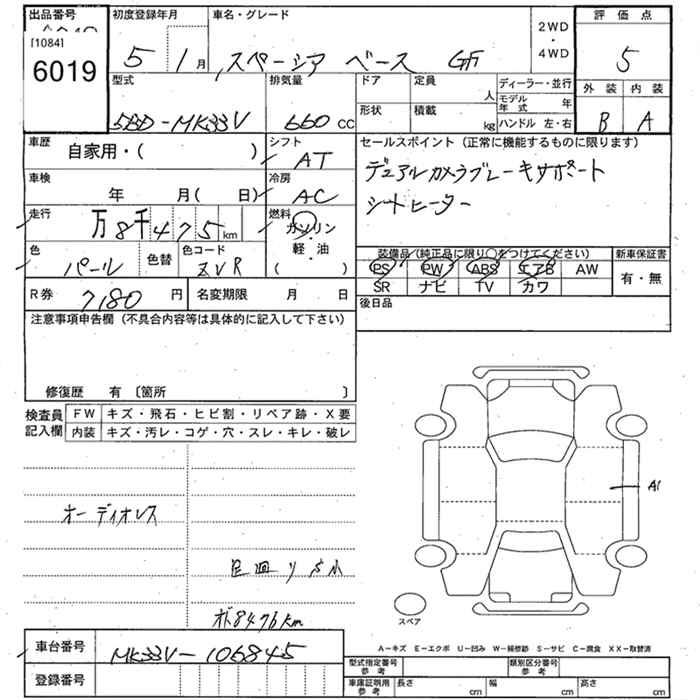 出品番号 初度登録年月 車名・グレード 2WD ・ 4WD 評価点
[1084]
6019
5 1月 スペーシア ベース GF 5
型式 排気量 ドア 定員 人 ディーラー・並行 外装 内装
モデル年式 年
5BD-MK33V 660 cc 形状 積載 kg ハンドル 左・右 B A
車歴 自家用・( ) シフト AT セールスポイント(正常に機能するものに限ります)
デュアルカメラブレーキサポート
車検 年 月( 日) 冷房 AC シートヒーター
走行 万8千475km 燃料 ガソリン
軽・油
( )
色 パール 色替 色コード ZVR
装備品(純正品に限り○をつけてください) 新車保証書
PS PW ABS エアB AW 有・無
SR ナビ TV カワ
R券 7,180 円 名変期限 月 日 後日品
注意事項申告欄(不具合内容等は具体的に記入して下さい)
修復歴 有 〔箇所 〕
検査員記入欄 FW キズ・飛石・ヒビ割・リペア跡・X要
内装 キズ・汚レ・コゲ・穴・スレ・キレ・破レ
A1
オーディオレス
足廻りサ小
8476km
スペア
A-キズ E-エクボ U-凹み W-補修跡 S-サビ C-腐食 XX-取替済
車台番号 MK33V-106845
登録番号
型式指定番号 参考 類別区分番号 参考
車庫証明用 参考 長さ cm 幅 cm 高さ cm